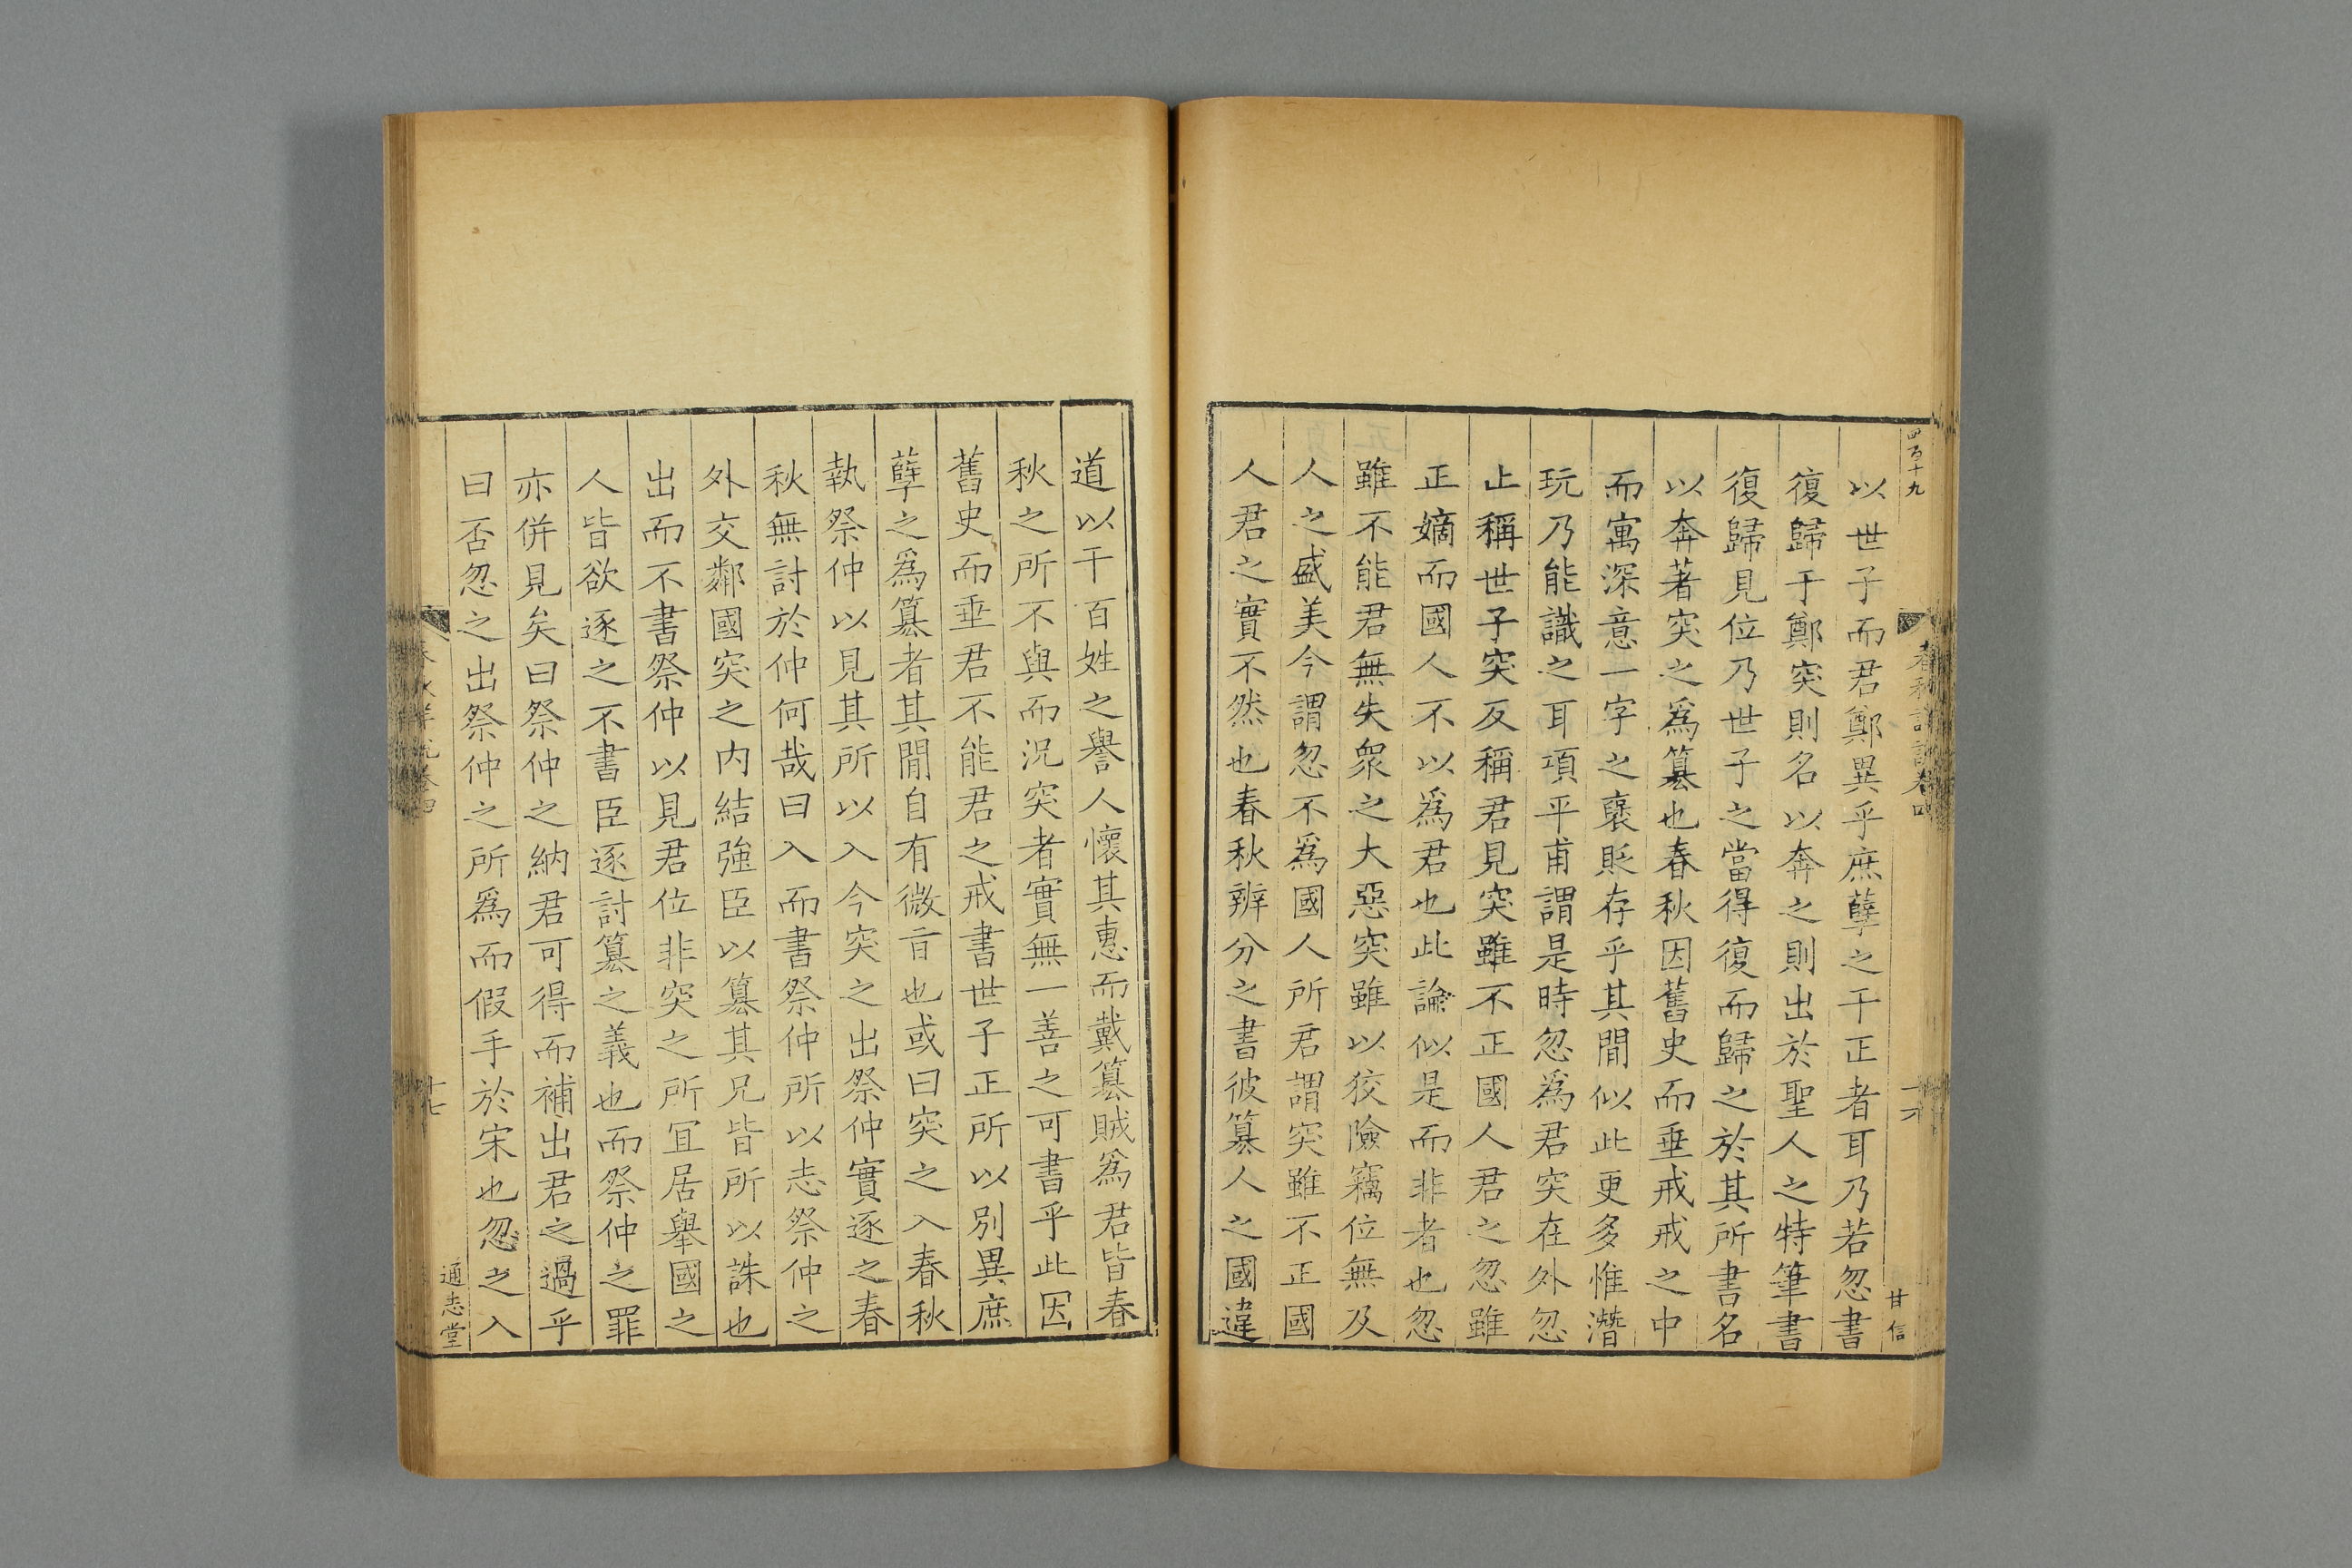 四百十九
春秋詳說卷四
十六
甘信
以世子而君鄭異乎庶孽之干正者耳乃若忽書
復歸于鄭突則名以奔之則出於聖人之特筆書
復歸見位乃世子之當得復而歸之於其所書名
以奔著突之爲篡也春秋因舊史而垂戒戒之中
而寓深意一字之襃貶存乎其閒似此更多惟潛
玩乃能識之耳項平甫謂是時忽爲君突在外忽
止稱世子突反稱君見突雖不正國人君之忽雖
正嫡而國人不以爲君也此論似是而非者也忽
雖不能君無失衆之大惡突雖以狡險竊位無及
人之盛美今謂忽不爲國人所君謂突雖不正國
人君之實不然也春秋辨分之書彼篡人之國違
道以干百姓之譽人懷其惠而戴篡賊爲君皆春
秋之所不與而況突者實無一善之可書乎此因
舊史而垂君不能君之戒書世子正所以別異庶
孽之爲篡者其閒自有微旨也或曰突之入春秋
執祭仲以見其所以入今突之出祭仲實逐之春
秋無討於仲何哉曰入而書祭仲所以志祭仲之
外交鄰國突之內結強臣以篡其兄皆所以誅也
出而不書祭仲以見君位非突之所宜居舉國之
人皆欲逐之不書臣逐討篡之義也而祭仲之罪
亦併見矣曰祭仲之納君可得而補出君之過乎
曰否忽之出祭仲之所爲而假手於宋也忽之入
春秋詳說卷四
十七
通志堂